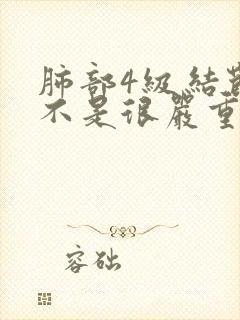 肺部4級結
不是很嚴重
容础